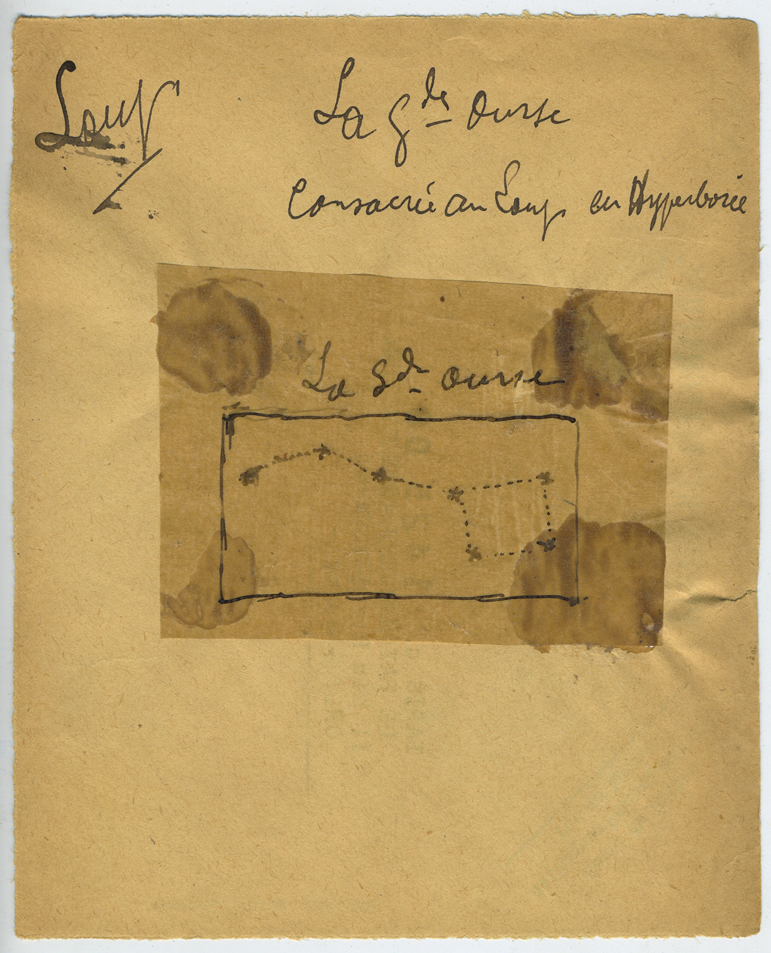 Loup
La Gde Ourse
Consacrée au Loup en Hyperborée
La Gde Ourse